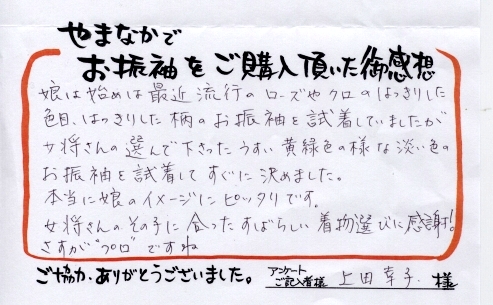 やまなかで
お振袖をご購入頂いた御感想
娘は始めは最近流行のローズやクロのはっきりした
色目、はっきりした柄のお振袖を試着していましたが
女将さんの選んで下さったうすい黄緑色の様な淡い色の
お振袖を試着してすぐに決めました。
本当に娘のイメージにピッタリです。
女将さんのその子に合ったすばらしい着物選びに感謝!
さすが"プロ"ですね
ご協力、ありがとうございました。 アンケートご記入者様 上田幸子 様